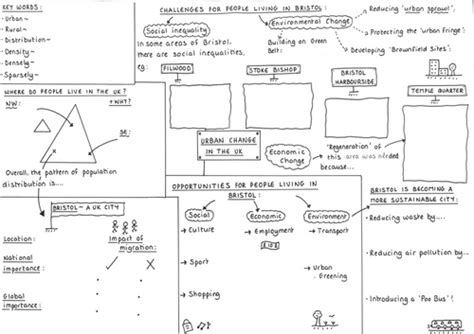 KEY WORDS:
- Urban -
- Rural -
- Distribution -
- Density -
- Densely -
- Sparsely -
CHALLENGES FOR PEOPLE LIVING IN BRISTOL:
Social inequality
In some areas of Bristol,
there are social inequalities,
eg:
Environmental Change
Building on Green
Belt.
Reducing 'urban sprawl'
Protecting the 'urban fringe':
Developing 'Brownfield Sites':
FILWOOD
STOKE BISHOP
BRISTOL
HARBOURSIDE
TEMPLE QUARTER
WHERE DO PEOPLE LIVE IN THE UK?
+ WHY?
NW:
SE:
Overall, the pattern of population
distribution is....
URBAN CHANGE
IN THE UK
Economic
Change
'Regeneration' of
this area was needed
because....
BRISTOL - A UK CITY
Location:
National
importance:
Global
importance:
Impact of
migration:
OPPORTUNITIES FOR PEOPLE LIVING IN
BRISTOL:
Social
→ Culture
→ Sport
→ Shopping
Economic
→ Employment
Environment
→ Transport
→ Urban
Greening
BRISTOL IS BECOMING A
MORE SUSTAINABLE CITY:
• Reducing waste by....
• Reducing air pollution by...
• Introducing a 'Poo Bus'!